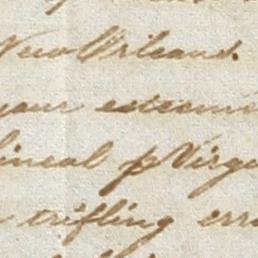 New Orleans.
your esteeme
lineal p Virg
trifling err